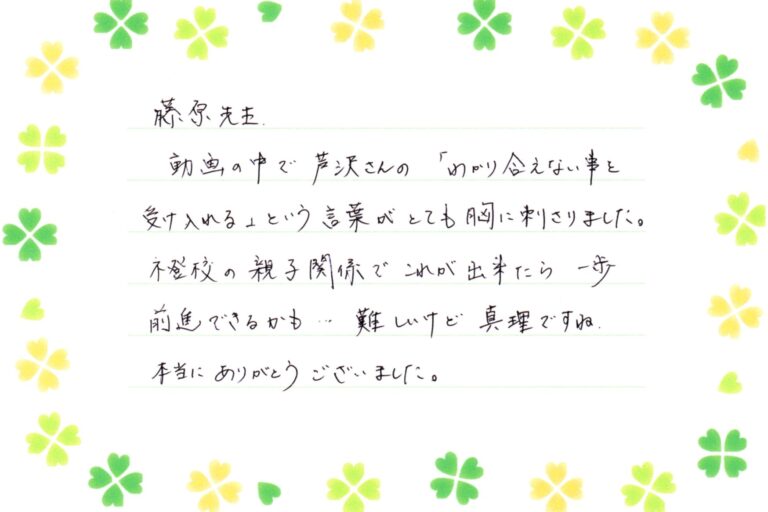 藤原先生.
動画の中で 芦沢さんの 「わかり合えない事を
受け入れる」という言葉が とても胸に刺さりました。
不登校の親子関係で これが出来たら 一歩
前進できるかも… 難しいけど 真理ですね.
本当に ありがとう ございました。